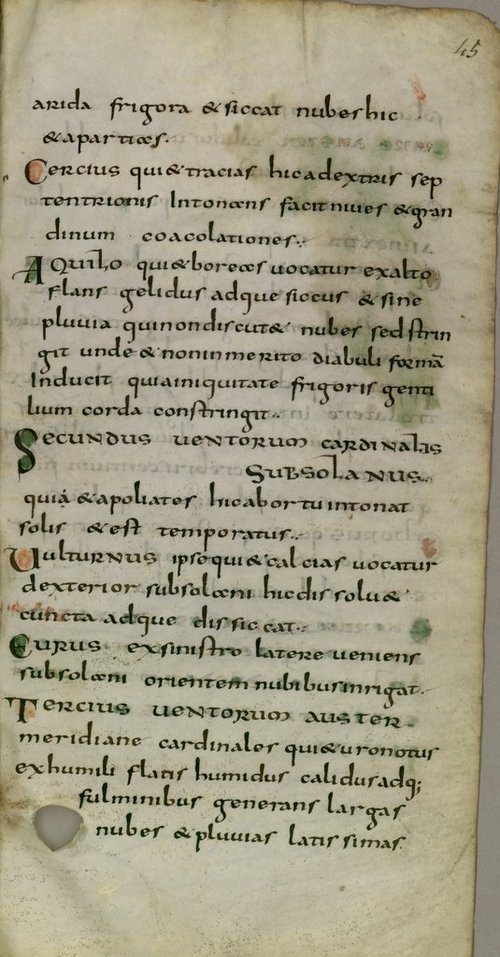 45
arida frigora & siccat nubes hic
& aparticas.
Cercius qui & tracias hic adextris sep
tentrionis Intonans facit nives & gran
dinum coacolationes.,
AQuilo qui & boreas uocatur exalto
flans gelidus adque siccus & sine
pluuia qui non discut& nubes sed strin
git unde & non inmerito diabuli formā
Inducit quia iniquitate frigoris genti
lium corda constringit..
Secundus uentorum cardinalis
Subsolanus.
qui & apoliates hic abortu intonat
solis & est temporatus.,
Uulturnus ipse qui & calcias uocatur
dexterior subsolani hic dissolu&
cuncta adque dissiccat.,
Eurus exsinistro latere ueniens
subsolani orientem nubibus inrigat.
Tercius uentorum auster
meridiane cardinales qui & uronotus
exhumili flatis humidus calidus adq;
fulminibus generans largas
nubes & pluuias latissimas.